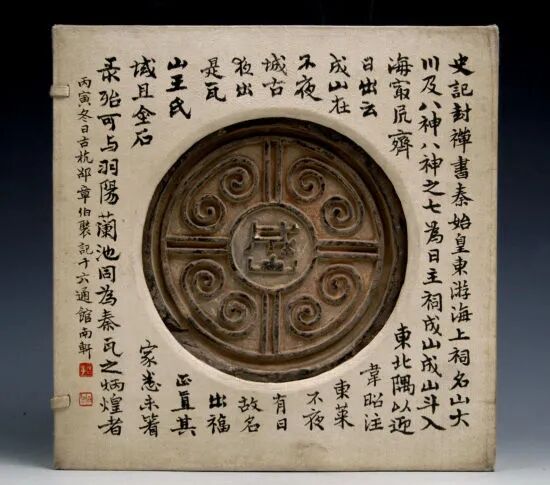 史記封禪書秦始皇東游海上祠名山大
川及八神八神之七為日主祠成山成山斗入
海最凥齊東北隅以迎
日出云韋昭注
成山在東萊
不夜不夜
城古有日
夜出故名
是瓦出福
山王氏正直其
域且金石家悉未箸
录殆可与羽陽蘭池同為秦瓦之炳煌者
丙寅冬日古杭邵章伯褧記十六通館南軒
成山